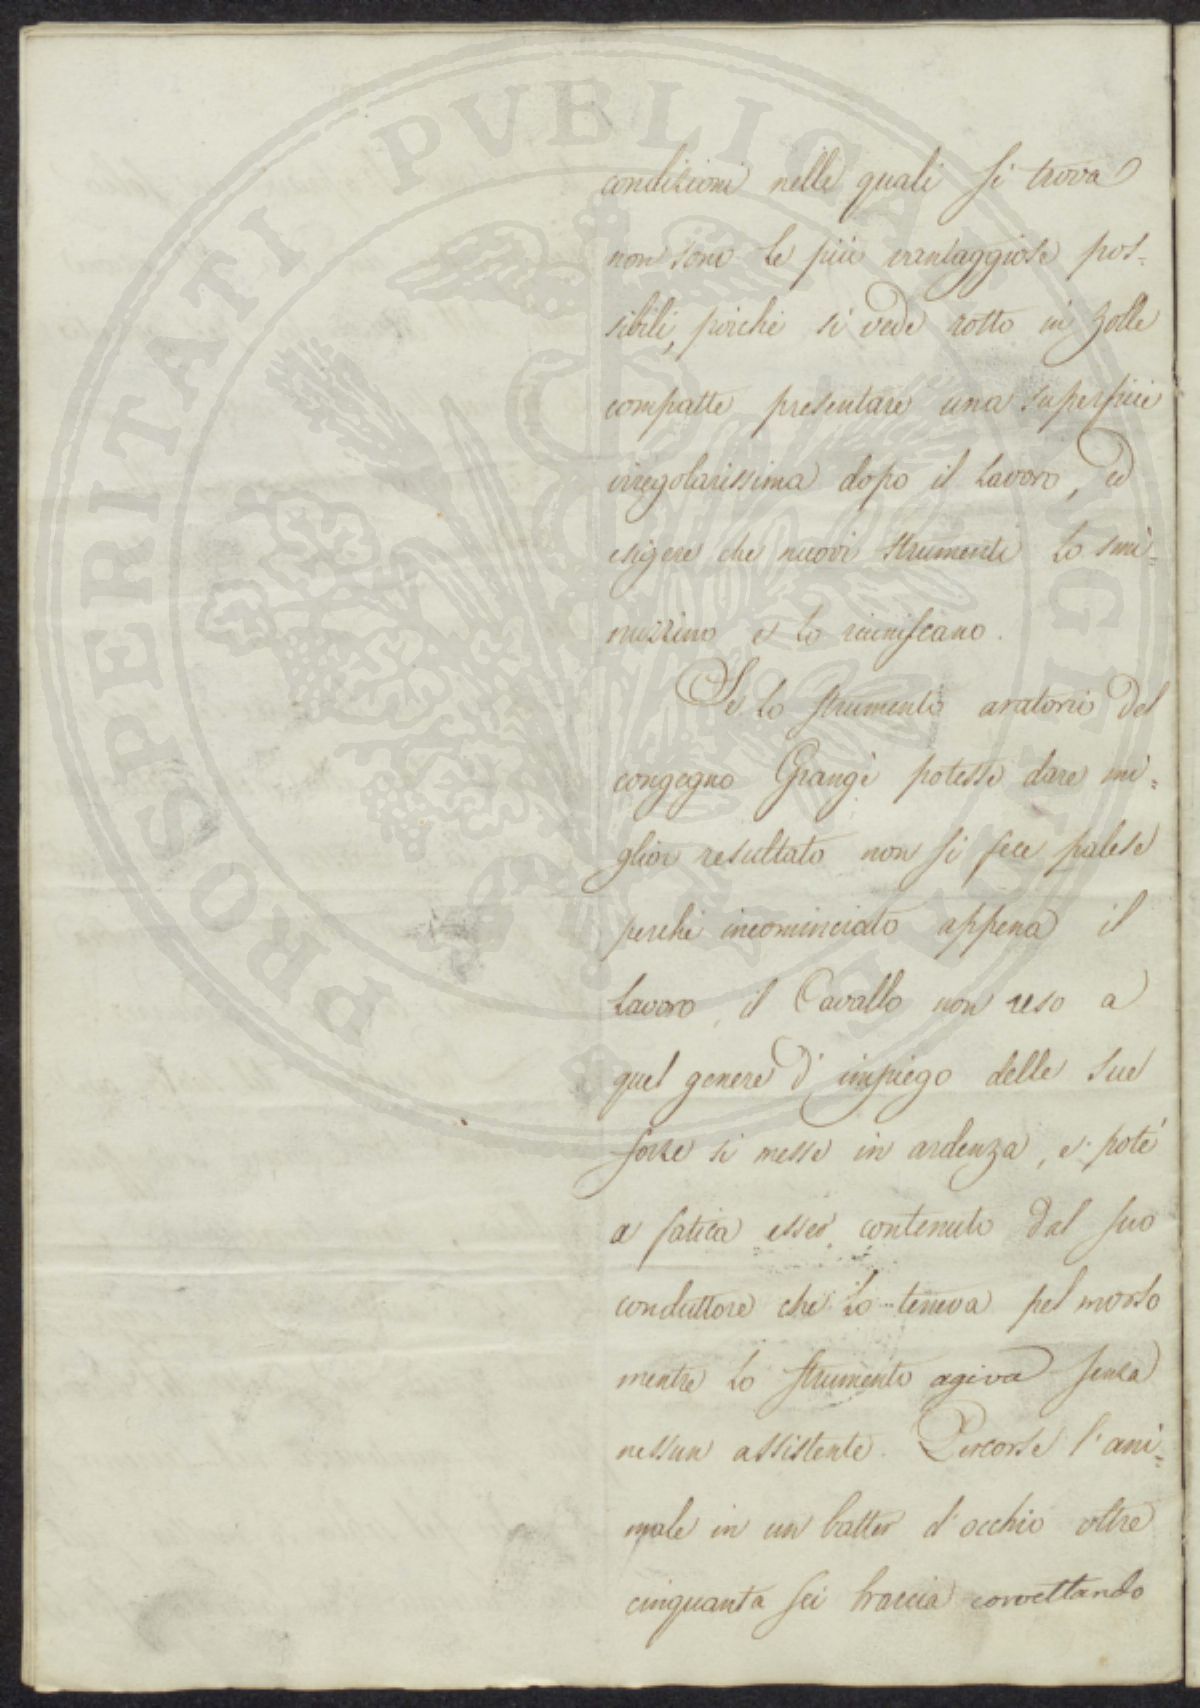 condizioni nelle quali si trova
non sono le più vantaggiose pos=
sibili, poichè si vede rotto in zolle
compatte presentare una superficie
irregolarissima dopo il lavoro, ed
esigere che nuovi strumenti lo smi=
nuzzino e lo riunifcano.
Se lo strumento aratorio del
congegno Grangè potesse dare mi=
glior resultato non si fece palese
perchè incominciato appena il
lavoro, il Cavallo non uso a
quel genere d'impiego delle sue
forze si messe in ardenza, e potè
a fatica esser contenuto dal suo
conduttore che lo teneva pel morso
mentre lo strumento agiva senza
nessun assistente. Percorse l'ani=
male in un batter d'occhio oltre
cinquanta sei braccia corvettando
PROSPERITATI PVBLICAE AVGENDAE